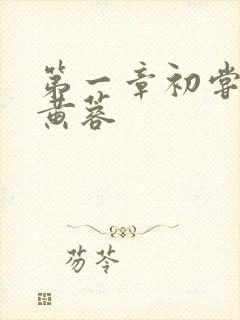 第一章初尝
黄蓉
芴芩